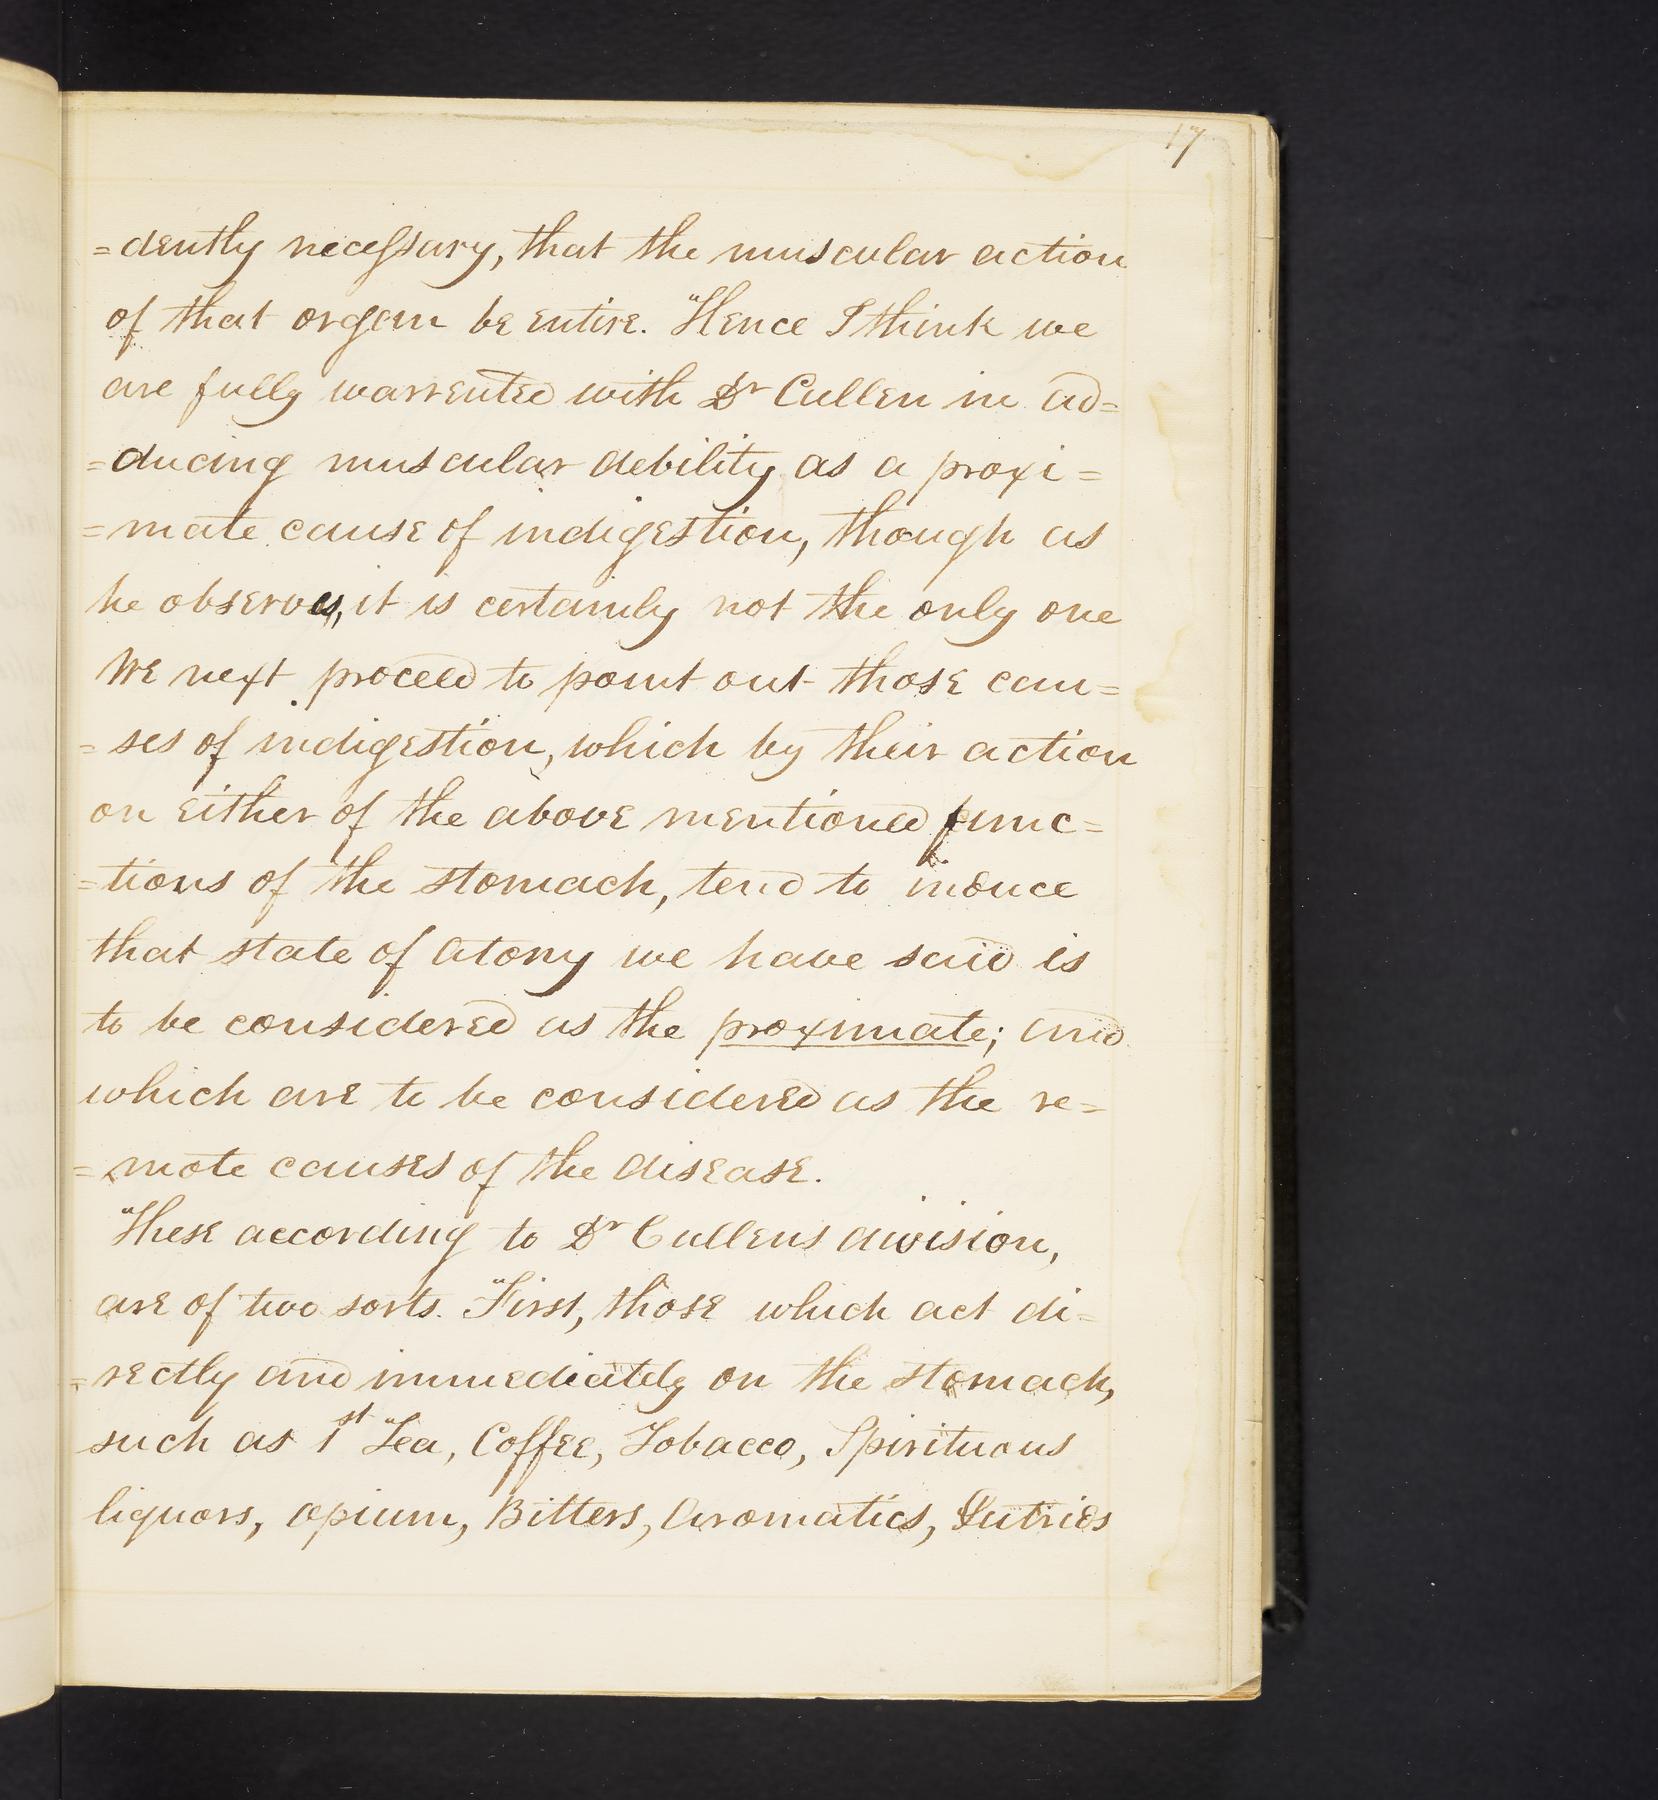 17
=dently necessary, that the muscular action
of that organ be entire. Hence I think we
are fully warrented with Dr Cullen in ad=
=ducing muscular debility as a proxi=
=mate cause of indigestion, though as
he observes, it is certainly not the only one
We next proceed to point out those cau=
=ses of indigestion, which by their action
on either of the above mentioned func=
=tions of the stomach, tend to induce
that state of atony we have said is
to be considered as the proximate; and
which are to be considered as the re=
=mote causes of the disease.
These according to Dr Cullens division,
are of two sorts. First, those which act di=
=rectly and immediately on the stomach,
such as 1st Tea, Coffee, Tobacco, Spirituous
liquors, opium, Bitters, Aromatics,